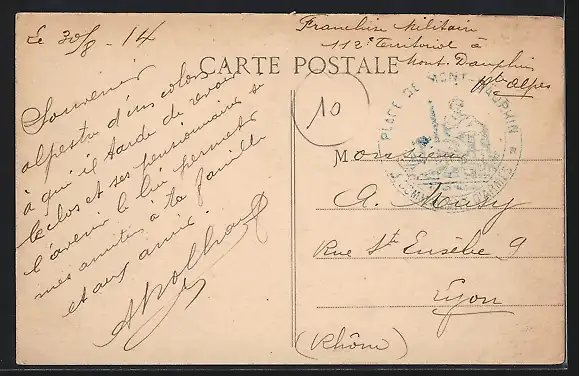 Le 30/8 - 14
Souvenir
alpestre d'un colon
à qui il tarde de revoir
le clos et ses pensionnaires si
l'avenir le lui permet
mes amitiés à ta famille
et aux amis.
Franchise Militaire
112e Territorial à
Mont-Dauphin
Htes Alpes
CARTE POSTALE
10
PLACE DE MONT-DAUPHIN
Monsieur
A.
Rue Ste Eusèbe 9
Lyon
(Rhône)